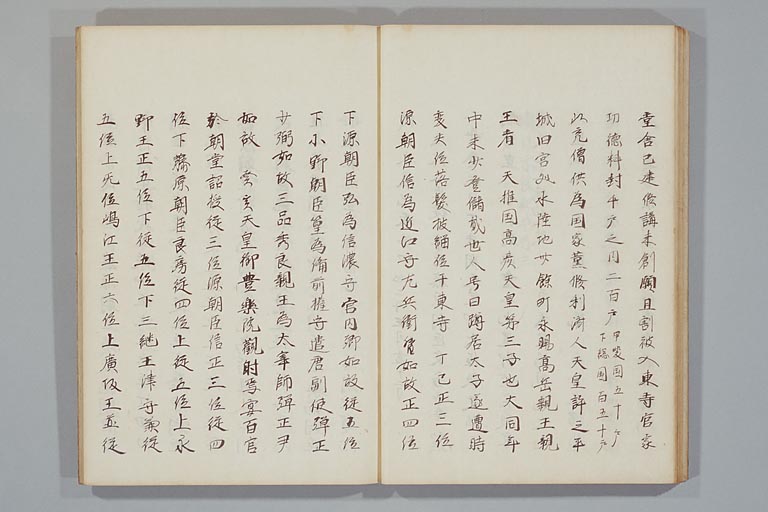 堂舎已建修講未創願且割被入東寺官家
功德料封千戸之内二百戸甲斐国五十戸
下総国百五十戸
以充僧供為国家薫修利済人天皇許之平
城旧宮処水陸地卌餘町永賜高岳親王親
王者天推国高彦天皇第三子也大同年
中末少登儲貳世人号曰蹲居太子遂遭時
変失位落髪披緇住于東寺丁巳正三位
源朝臣信為近江守左兵衛督如故正四位
下源朝臣弘為信濃守宮内卿如故従五位
下小野朝臣篁為備前権守遣唐副使弾正
少弼如故三品秀良親王為太宰帥弾正尹
如故癸亥天皇御豊樂院觀射焉宴百官
於朝堂詔授従三位源朝臣信正三位従四
位下藤原朝臣良房従四位上従五位上永
野王正五位下従五位下三継王津守兼従
五位上无位嶋江王正六位上廣坂王並従